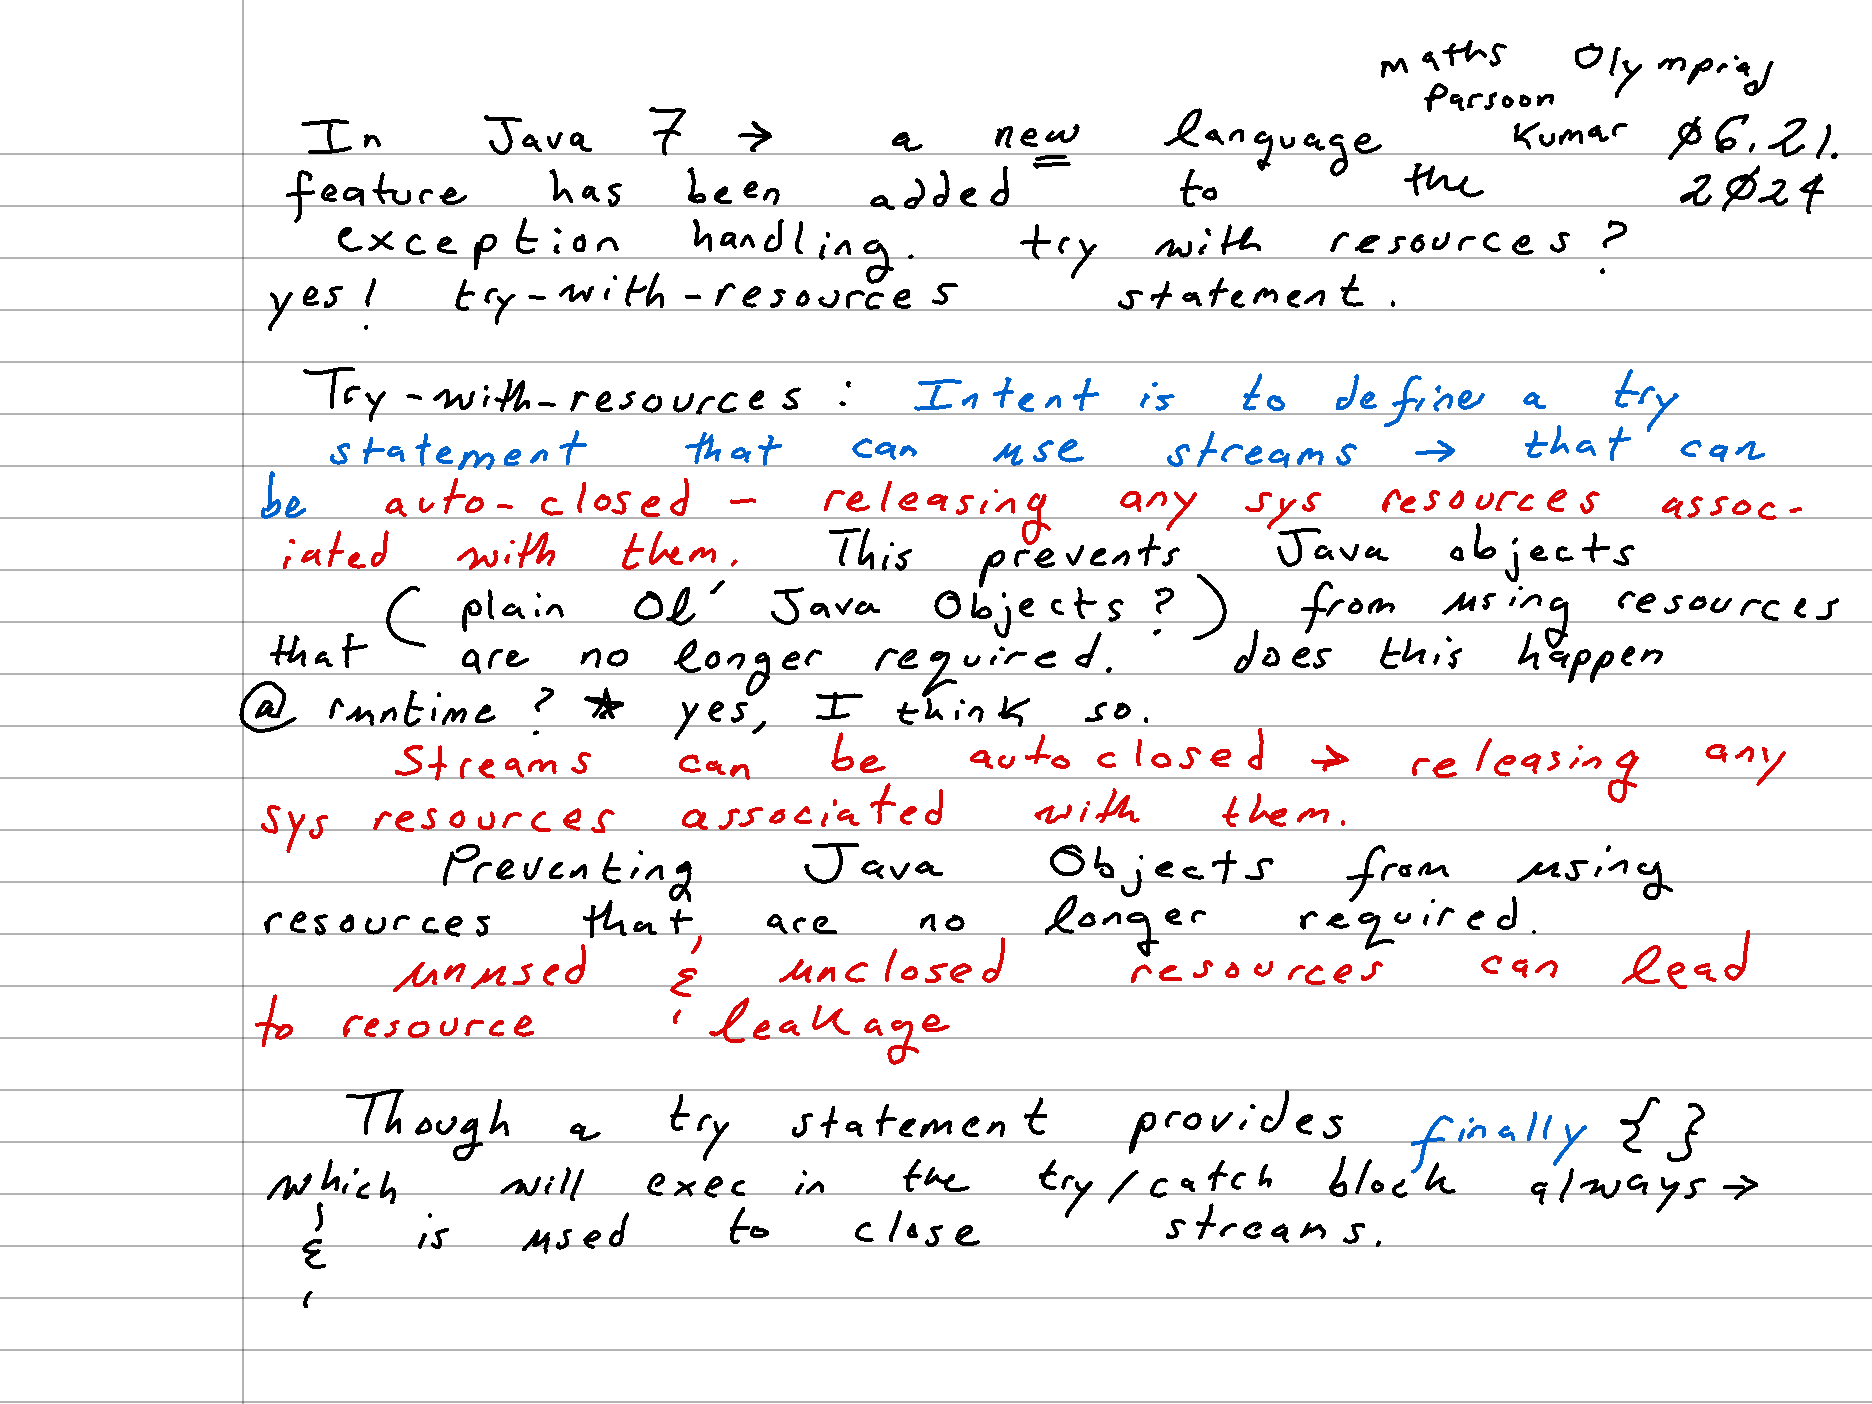 maths Olympiad
Parsoon
Kumar ø6.21.
2ø24
In Java 7 → a new language
feature has been added to the
exception handling. try with resources?
yes! try-with-resources statement.
Try-with-resources: Intent is to define a try
statement that can use streams → that can
be auto-closed - releasing any sys resources assoc-
iated with them. This prevents Java objects
(plain Ol' Java Objects?) from using resources
that are no longer required. does this happen
@ runtime? * yes, I think so.
Streams can be auto closed → releasing any
sys resources associated with them.
Preventing Java Objects from using
resources that are no longer required.
unused & unclosed resources can lead
to resource leakage
Though a try statement provides finally { }
which will exec in the try/catch block always →
& is used to close streams.